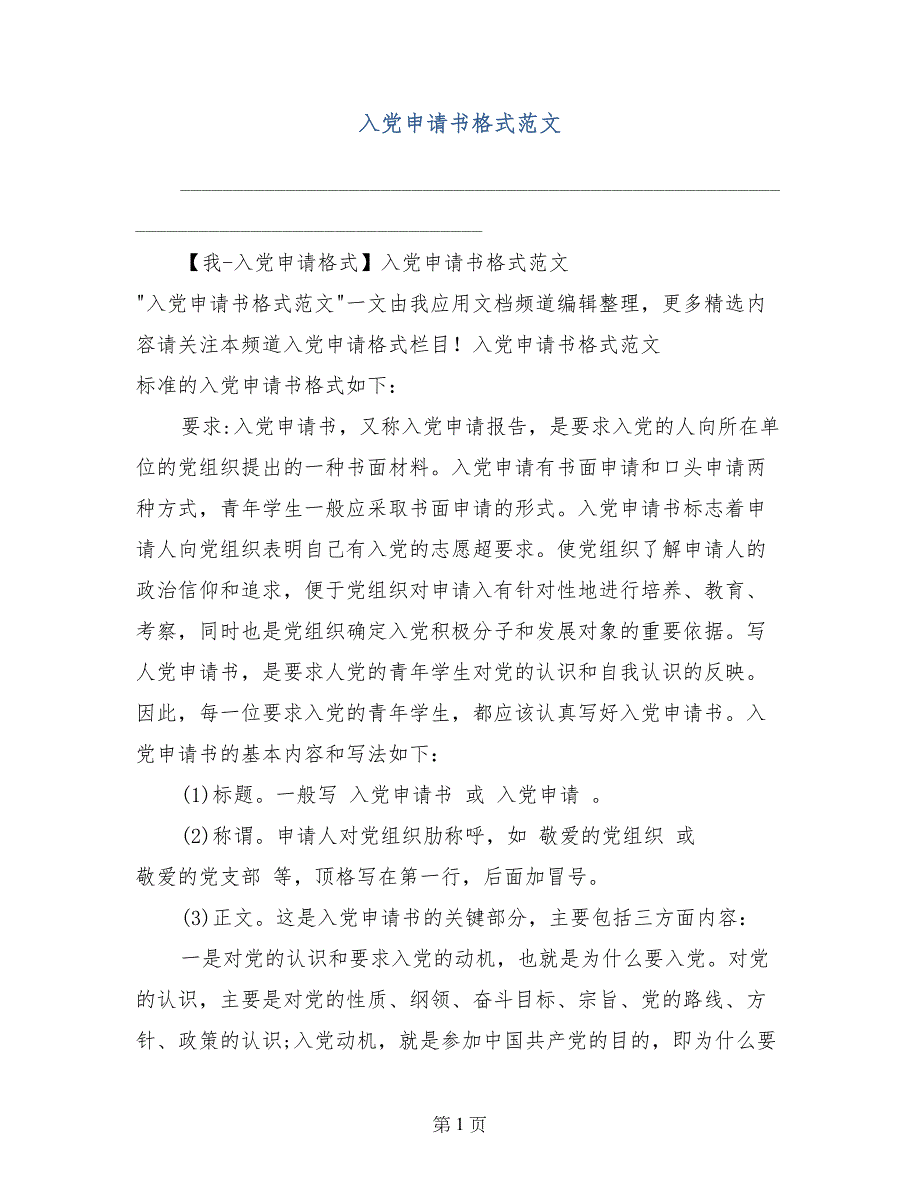 入党申请书格式范文
【我-入党申请格式】入党申请书格式范文
"入党申请书格式范文"一文由我应用文档频道编辑整理，更多精选内
容请关注本频道入党申请格式栏目！入党申请书格式范文
标准的入党申请书格式如下：
要求:入党申请书，又称入党申请报告，是要求入党的人向所在单
位的党组织提出的一种书面材料。入党申请有书面申请和口头申请两
种方式，青年学生一般应采取书面申请的形式。入党申请书标志着申
请人向党组织表明自己有入党的志愿超要求。使党组织了解申请人的
政治信仰和追求，便于党组织对申请入有针对性地进行培养、教育、
考察，同时也是党组织确定入党积极分子和发展对象的重要依据。写
人党申请书，是要求人党的青年学生对党的认识和自我认识的反映。
因此，每一位要求入党的青年学生，都应该认真写好入党申请书。入
党申请书的基本内容和写法如下：
(1)标题。一般写 入党申请书 或 入党申请 。
(2)称谓。申请人对党组织肋称呼，如 敬爱的党组织 或
敬爱的党支部 等，顶格写在第一行，后面加冒号。
(3)正文。这是入党申请书的关键部分，主要包括三方面内容：
一是对党的认识和要求入党的动机，也就是为什么要入党。对党
的认识，主要是对党的性质、纲领、奋斗目标、宗旨、党的路线、方
针、政策的认识;入党动机，就是参加中国共产党的目的，即为什么要
第 1 页